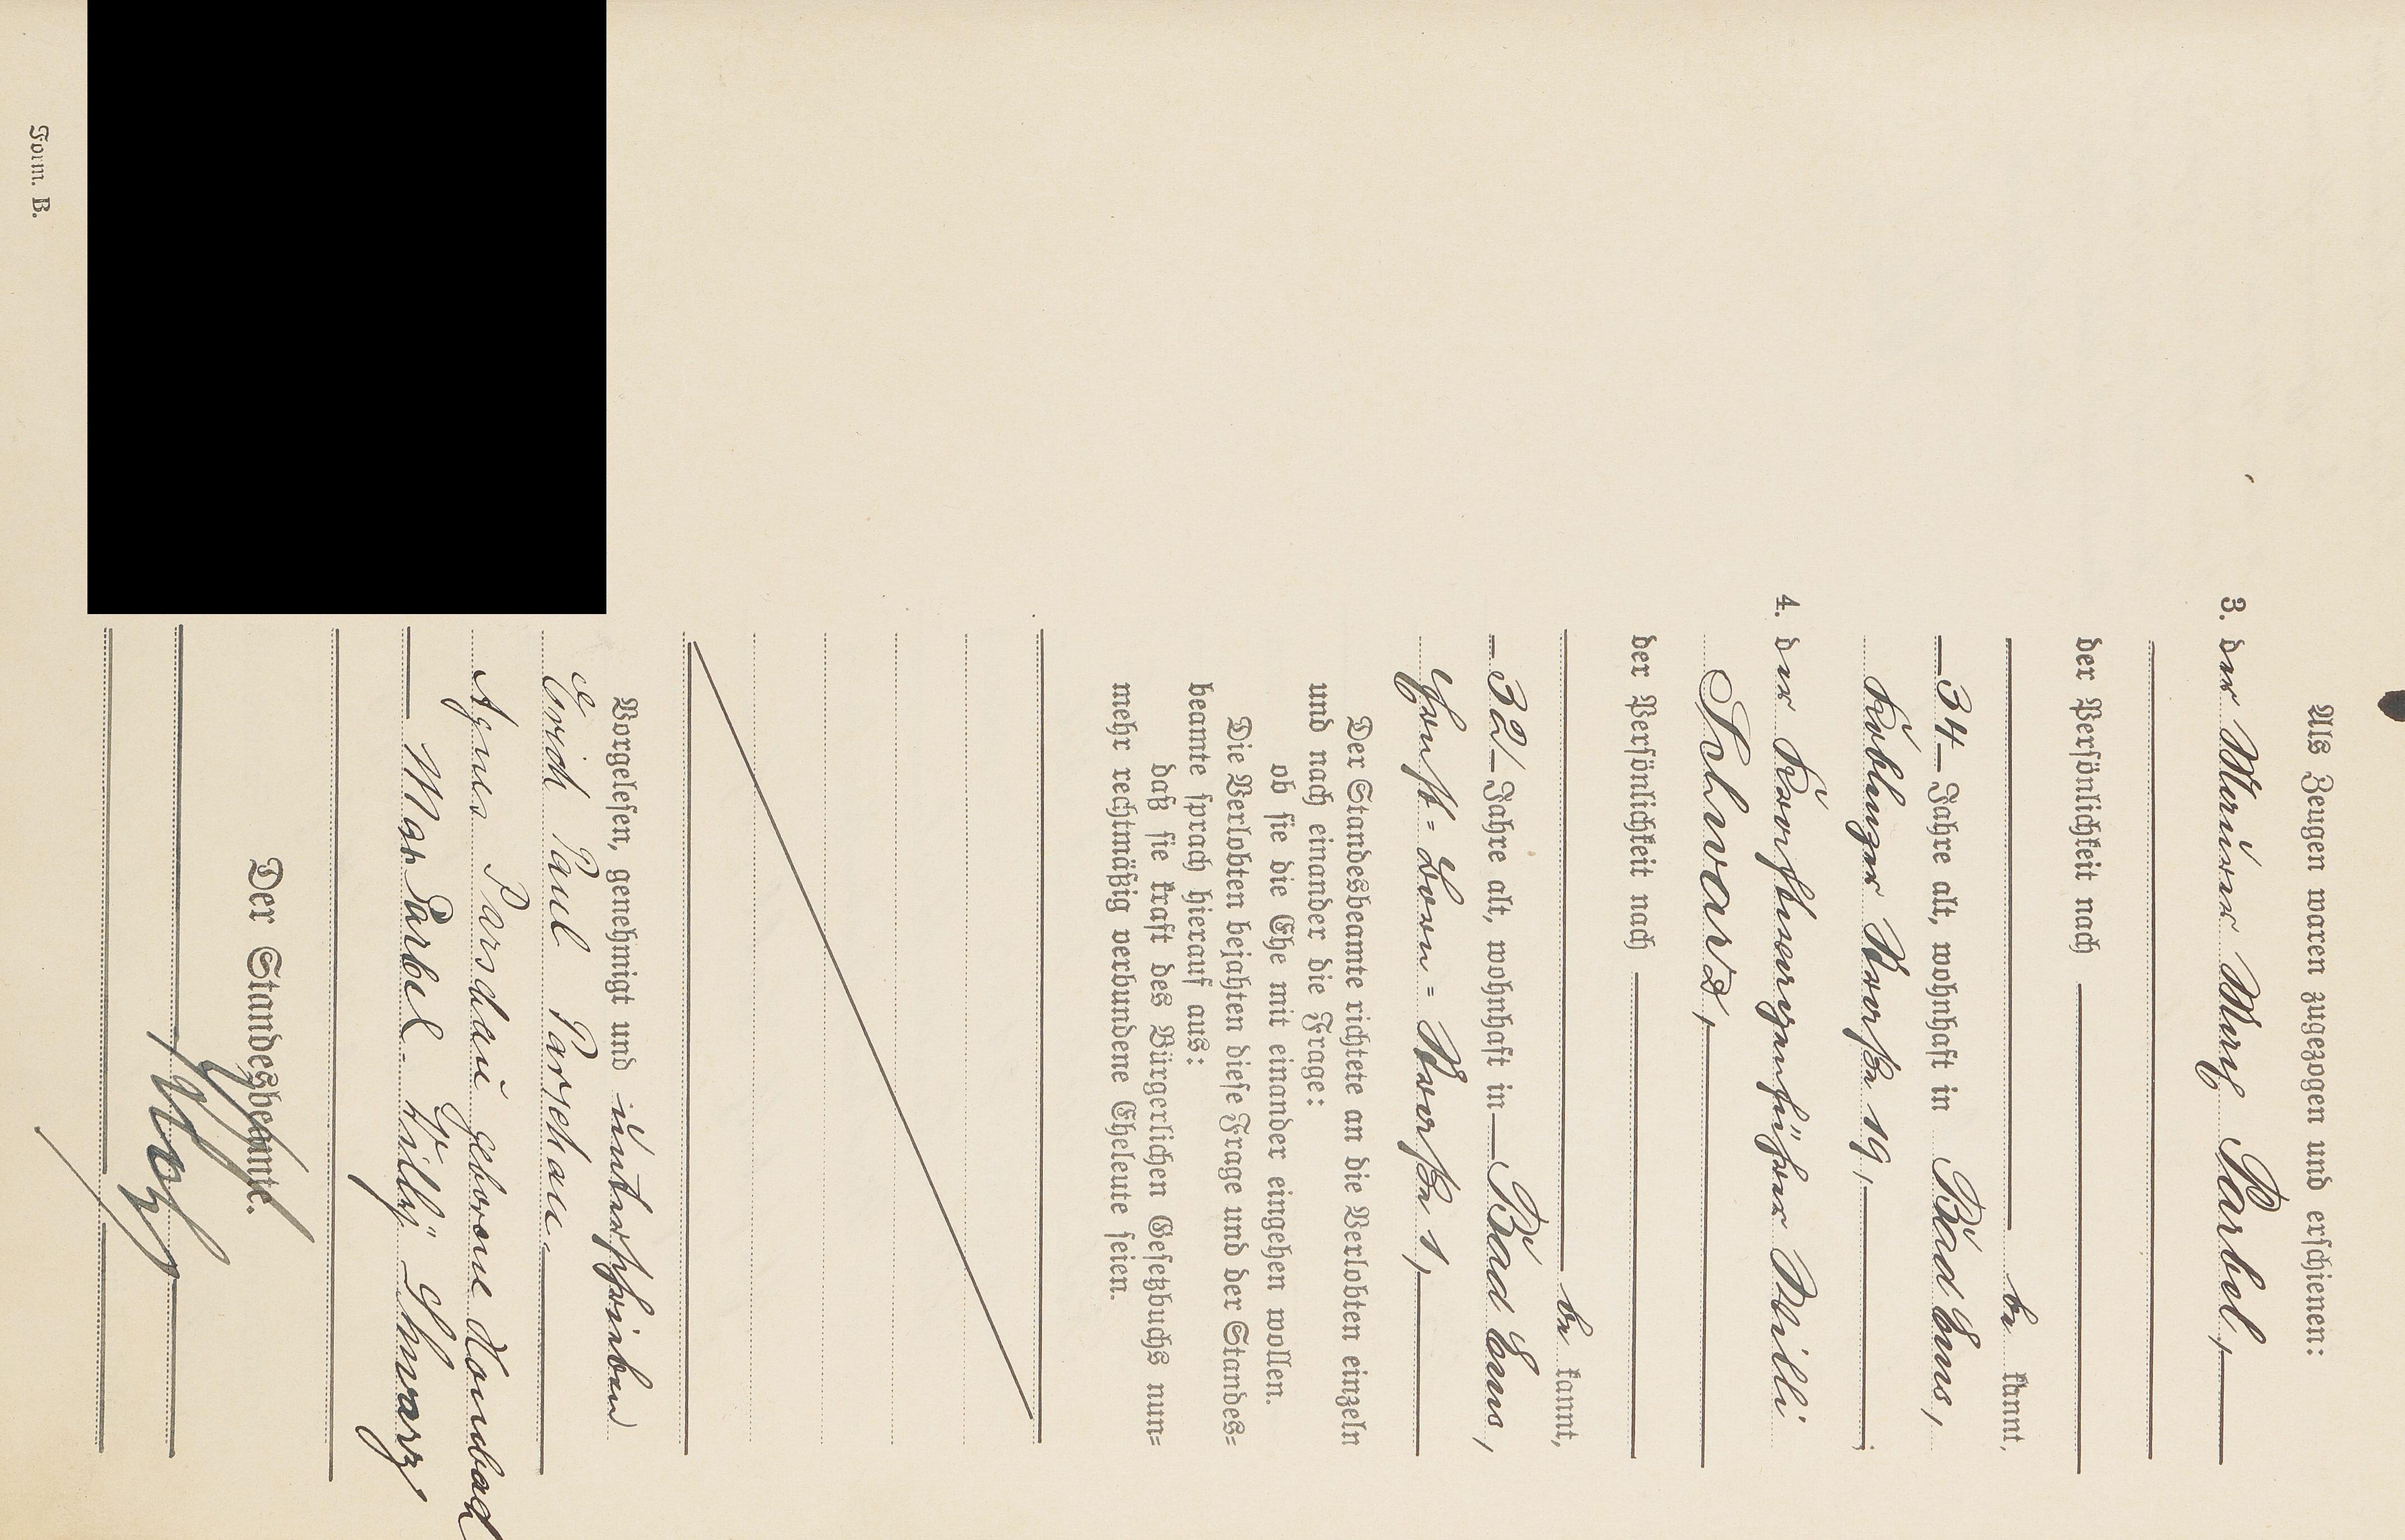 Als Zeugen waren zugezogen und erschienen:
3. der Maurer Max Parbel,
der Persönlichkeit nach
be kannt,
34 Jahre alt, wohnhaft in Bad Ems,
Koblenzer Straße 19,
4. der Kraftwagenführer Willi
Schwarz,
der Persönlichkeit nach
be kannt,
32 Jahre alt, wohnhaft in Bad Ems,
Straße 1,
Der Standesbeamte richtete an die Verlobten einzeln
und nach einander die Frage:
ob sie die Ehe mit einander eingehen wollen.
Die Verlobten bejahten diese Frage und der Standes=
beamte sprach hierauf aus:
daß sie kraft des Bürgerlichen Gesetzbuchs nun=
mehr rechtmäßig verbundene Eheleute seien.
Vorgelesen, genehmigt und unterschrieben
Erich Paul Parschau.
Agnes Parschau geborene Dombach
Max Parbel. Willy Schwarz
Der Standesbeamte.
Form. B.